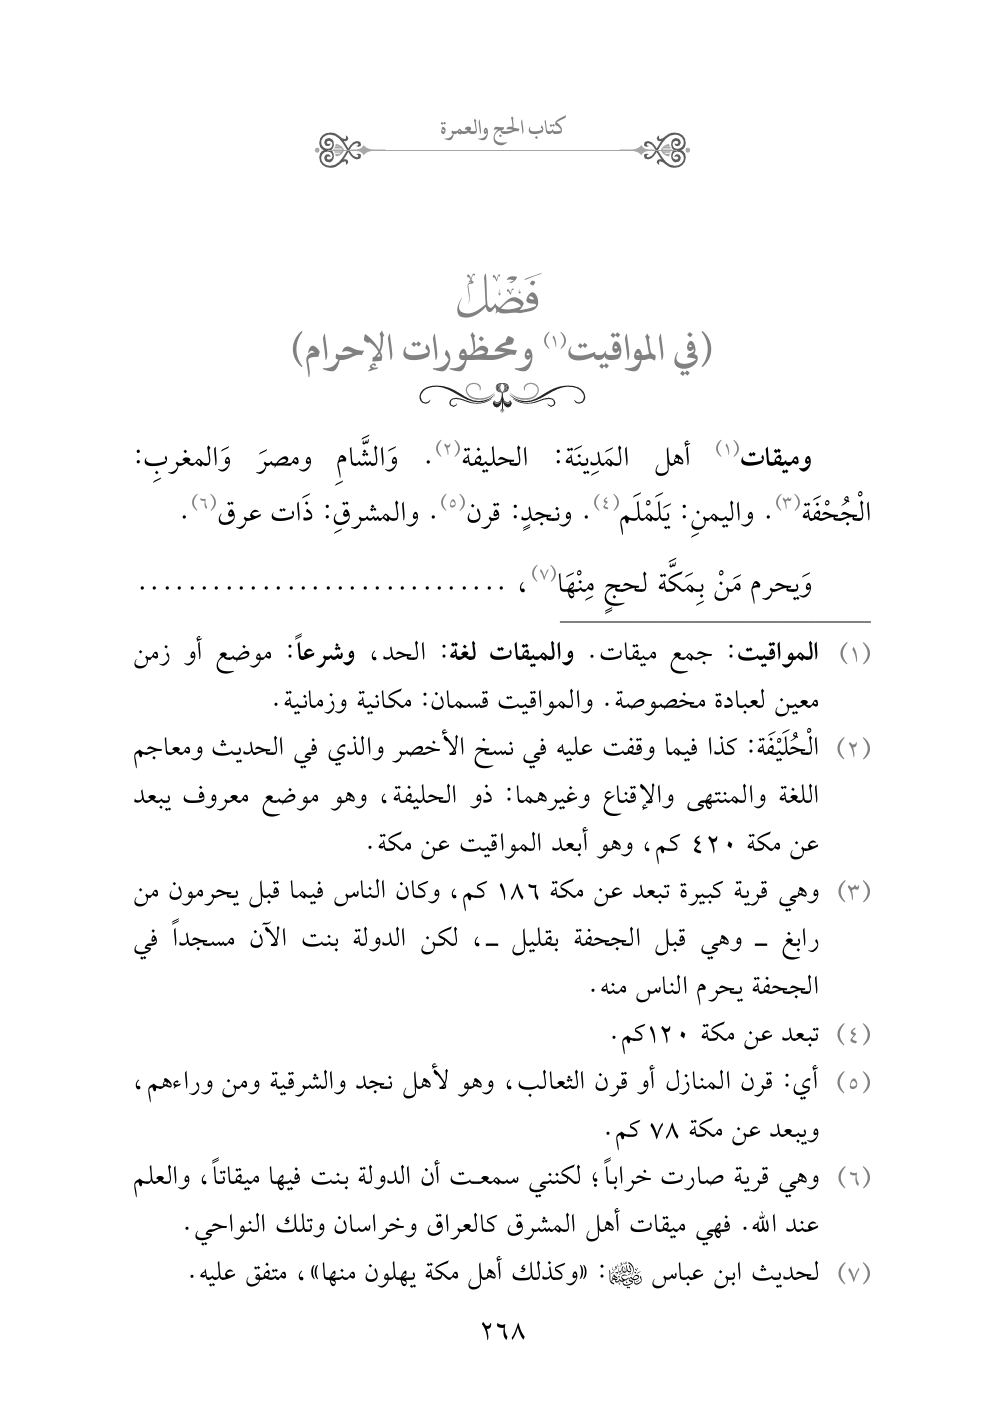 كتاب الحج والعمرة
فَصْل
(في المواقيت(١) ومحظورات الإحرام)
وميقات(١) أهل المَدِينَة: الحليفة(٢). وَالشَّامِ ومصرَ وَالمغربِ:
الْجُحْفَة(٣). واليمنِ: يَلَمْلَم(٤). ونجدٍ: قرن(٥). والمشرقِ: ذَات عرق(٦).
وَيحرم مَنْ بِمَكَّة لحجٍ مِنْهَا(٧)، ..............................
(١) المواقيت: جمع ميقات. والميقات لغة: الحد، وشرعاً: موضع أو زمن
معين لعبادة مخصوصة. والمواقيت قسمان: مكانية وزمانية.
(٢) الْحُلَيْفَة: كذا فيما وقفت عليه في نسخ الأخصر والذي في الحديث ومعاجم
اللغة والمنتهى والإقناع وغيرهما: ذو الحليفة، وهو موضع معروف يبعد
عن مكة ٤٢٠ كم، وهو أبعد المواقيت عن مكة.
(٣) وهي قرية كبيرة تبعد عن مكة ١٨٦ كم، وكان الناس فيما قبل يحرمون من
رابغ ــ وهي قبل الجحفة بقليل ــ، لكن الدولة بنت الآن مسجداً في
الجحفة يحرم الناس منه.
(٤) تبعد عن مكة ١٢٠كم.
(٥) أي: قرن المنازل أو قرن الثعالب، وهو لأهل نجد والشرقية ومن وراءهم،
ويبعد عن مكة ٧٨ كم.
(٦) وهي قرية صارت خراباً؛ لكنني سمعت أن الدولة بنت فيها ميقاتاً، والعلم
عند الله. فهي ميقات أهل المشرق كالعراق وخراسان وتلك النواحي.
(٧) لحديث ابن عباس رضي الله عنهما: «وكذلك أهل مكة يهلون منها»، متفق عليه.
٢٦٨